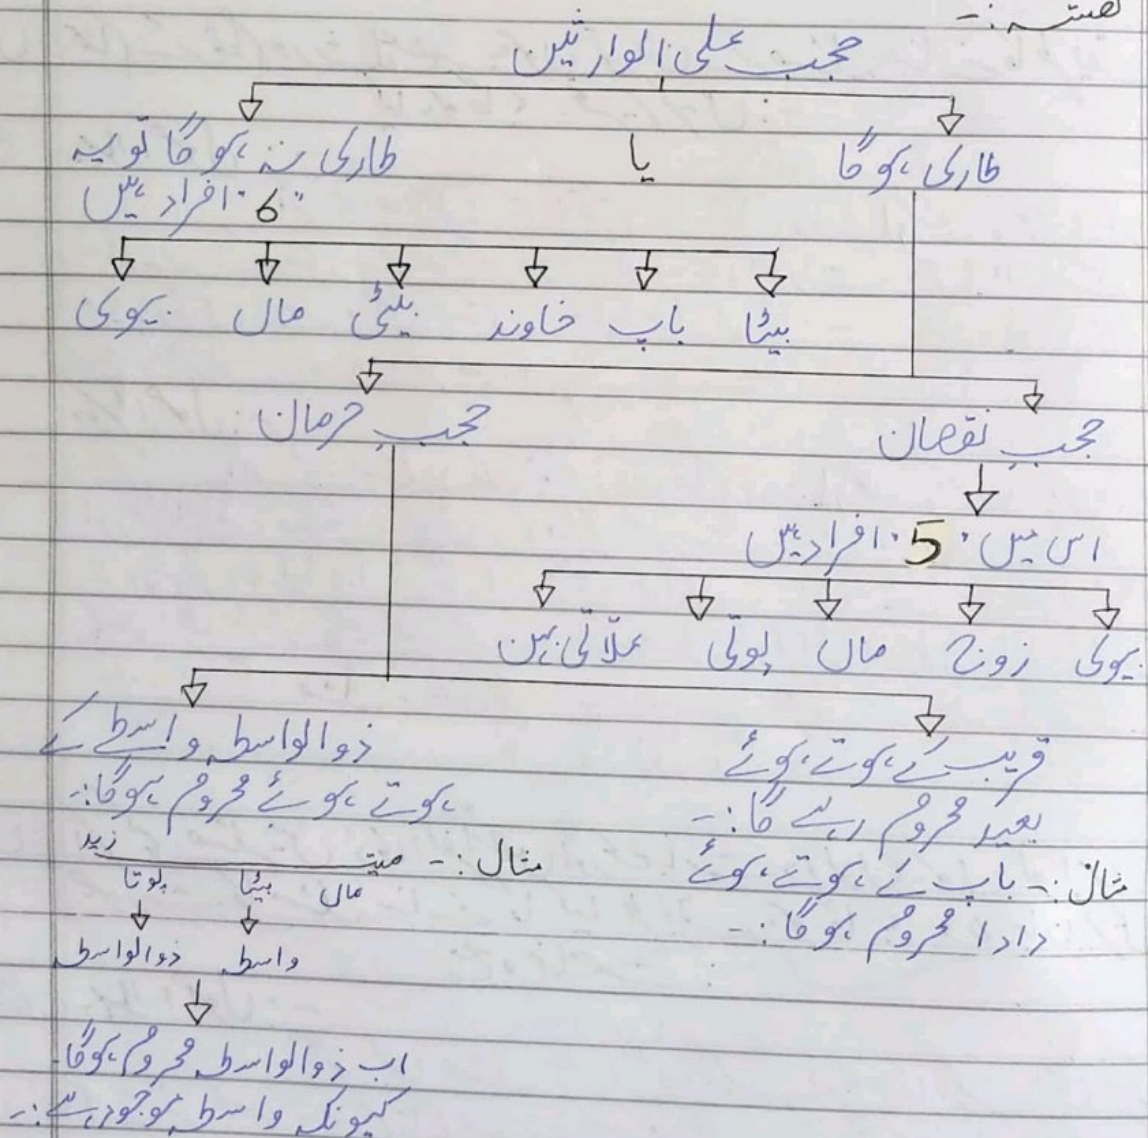 نقشہ :-
حجب علی الوارثین
طاری ہوگا یا طاری نہ ہوگا تو یہ
"6" افراد ہیں
بیٹا باپ خاوند بیٹی ماں بیوی
حجبِ نقصان حجبِ حرمان
اس میں "5" افراد ہیں
بیوی زوج ماں پوتی علّاتی بہن
قریب کے ہوتے ہوئے
بعید محروم رہے گا :-
مثال :- باپ کے ہوتے ہوئے
دادا محروم ہوگا :-
ذوالواسطہ واسطے کے
ہوتے ہوئے محروم ہوگا :-
مثال :- میت زید
ماں بیٹا پوتا
واسطہ ذوالواسطہ
اب ذوالواسطہ محروم ہوگا
کیونکہ واسطہ موجود ہے :-